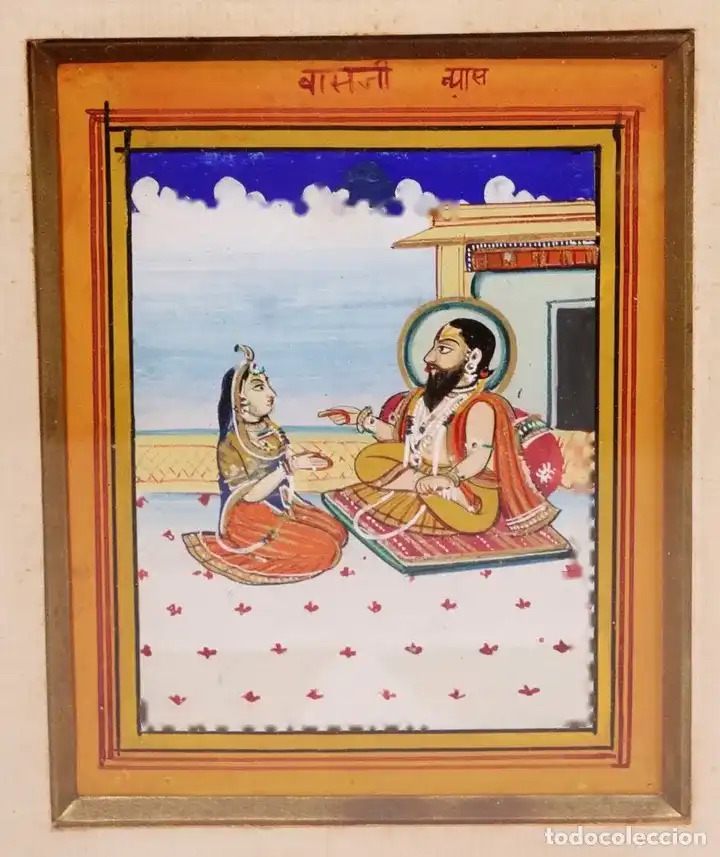 बासजी न्यास
todocoleccion